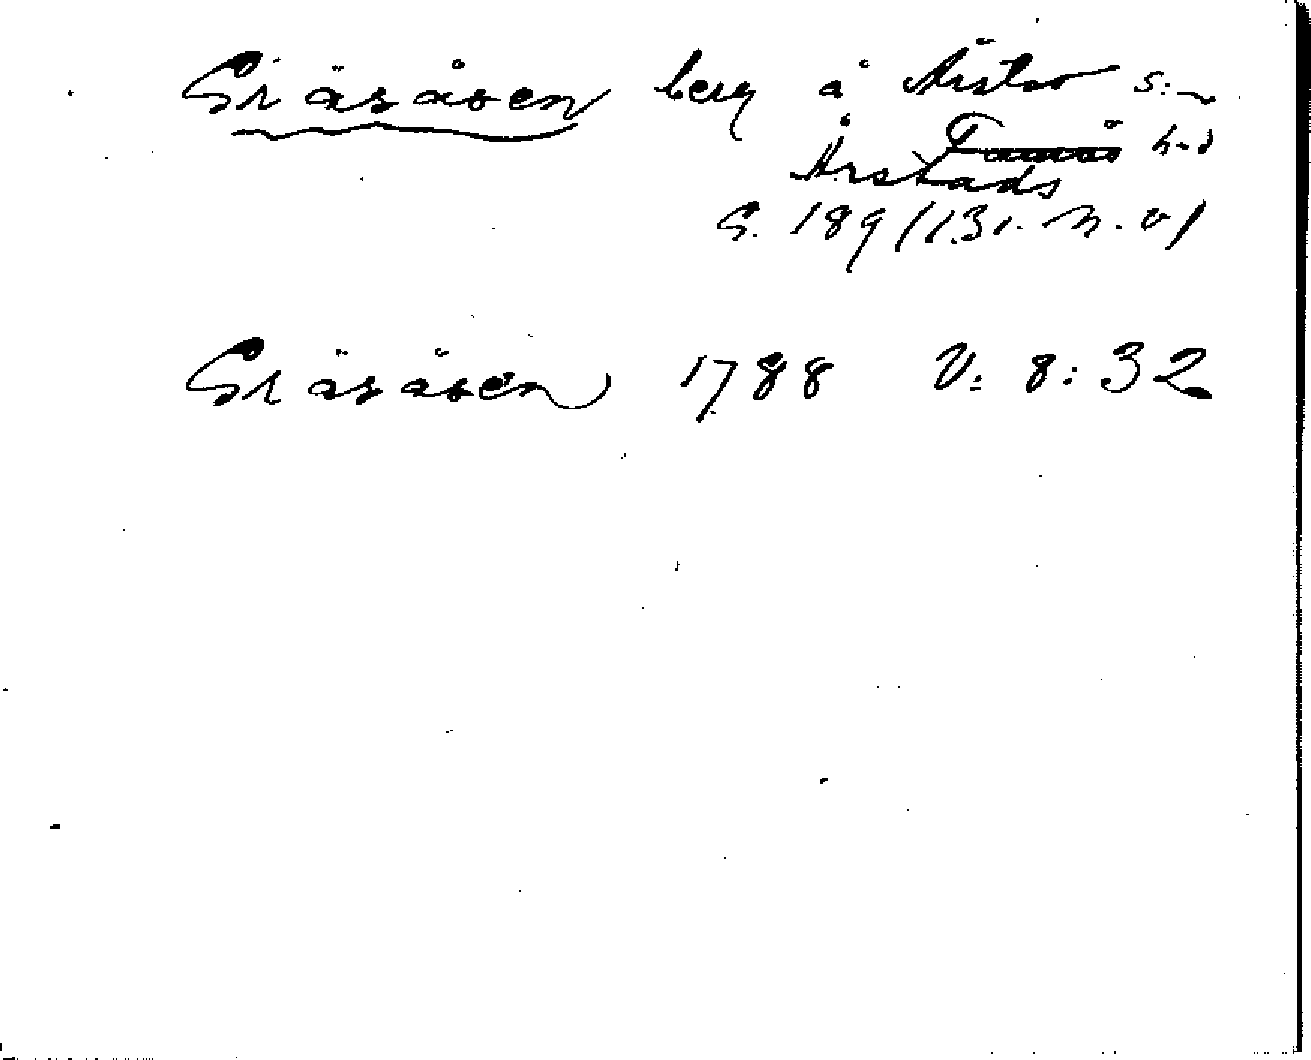 Gräsåsen berg å Årstad s:n
Årstads h-d
S. 189 (131. n. v)
Gräsåsen 1788 V: 8:32